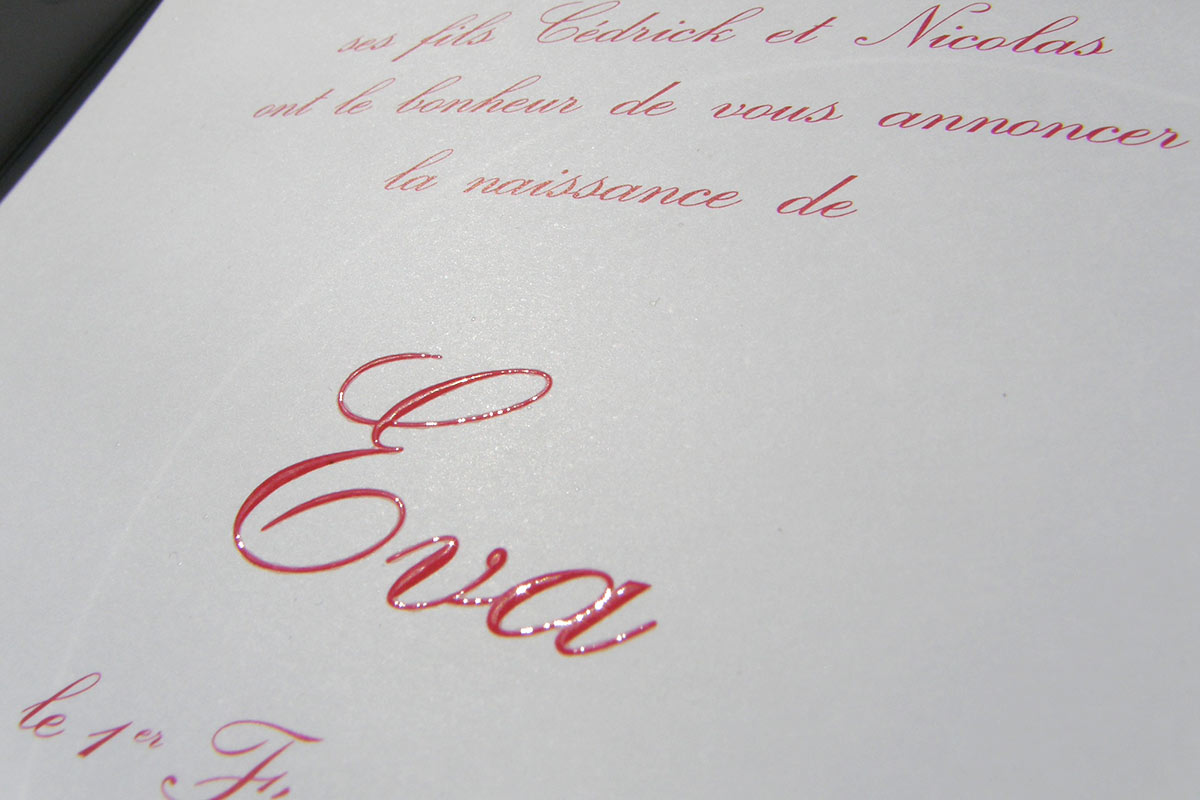 ses fils Cédrick et Nicolas
ont le bonheur de vous annoncer
la naissance de
Eva
le 1er